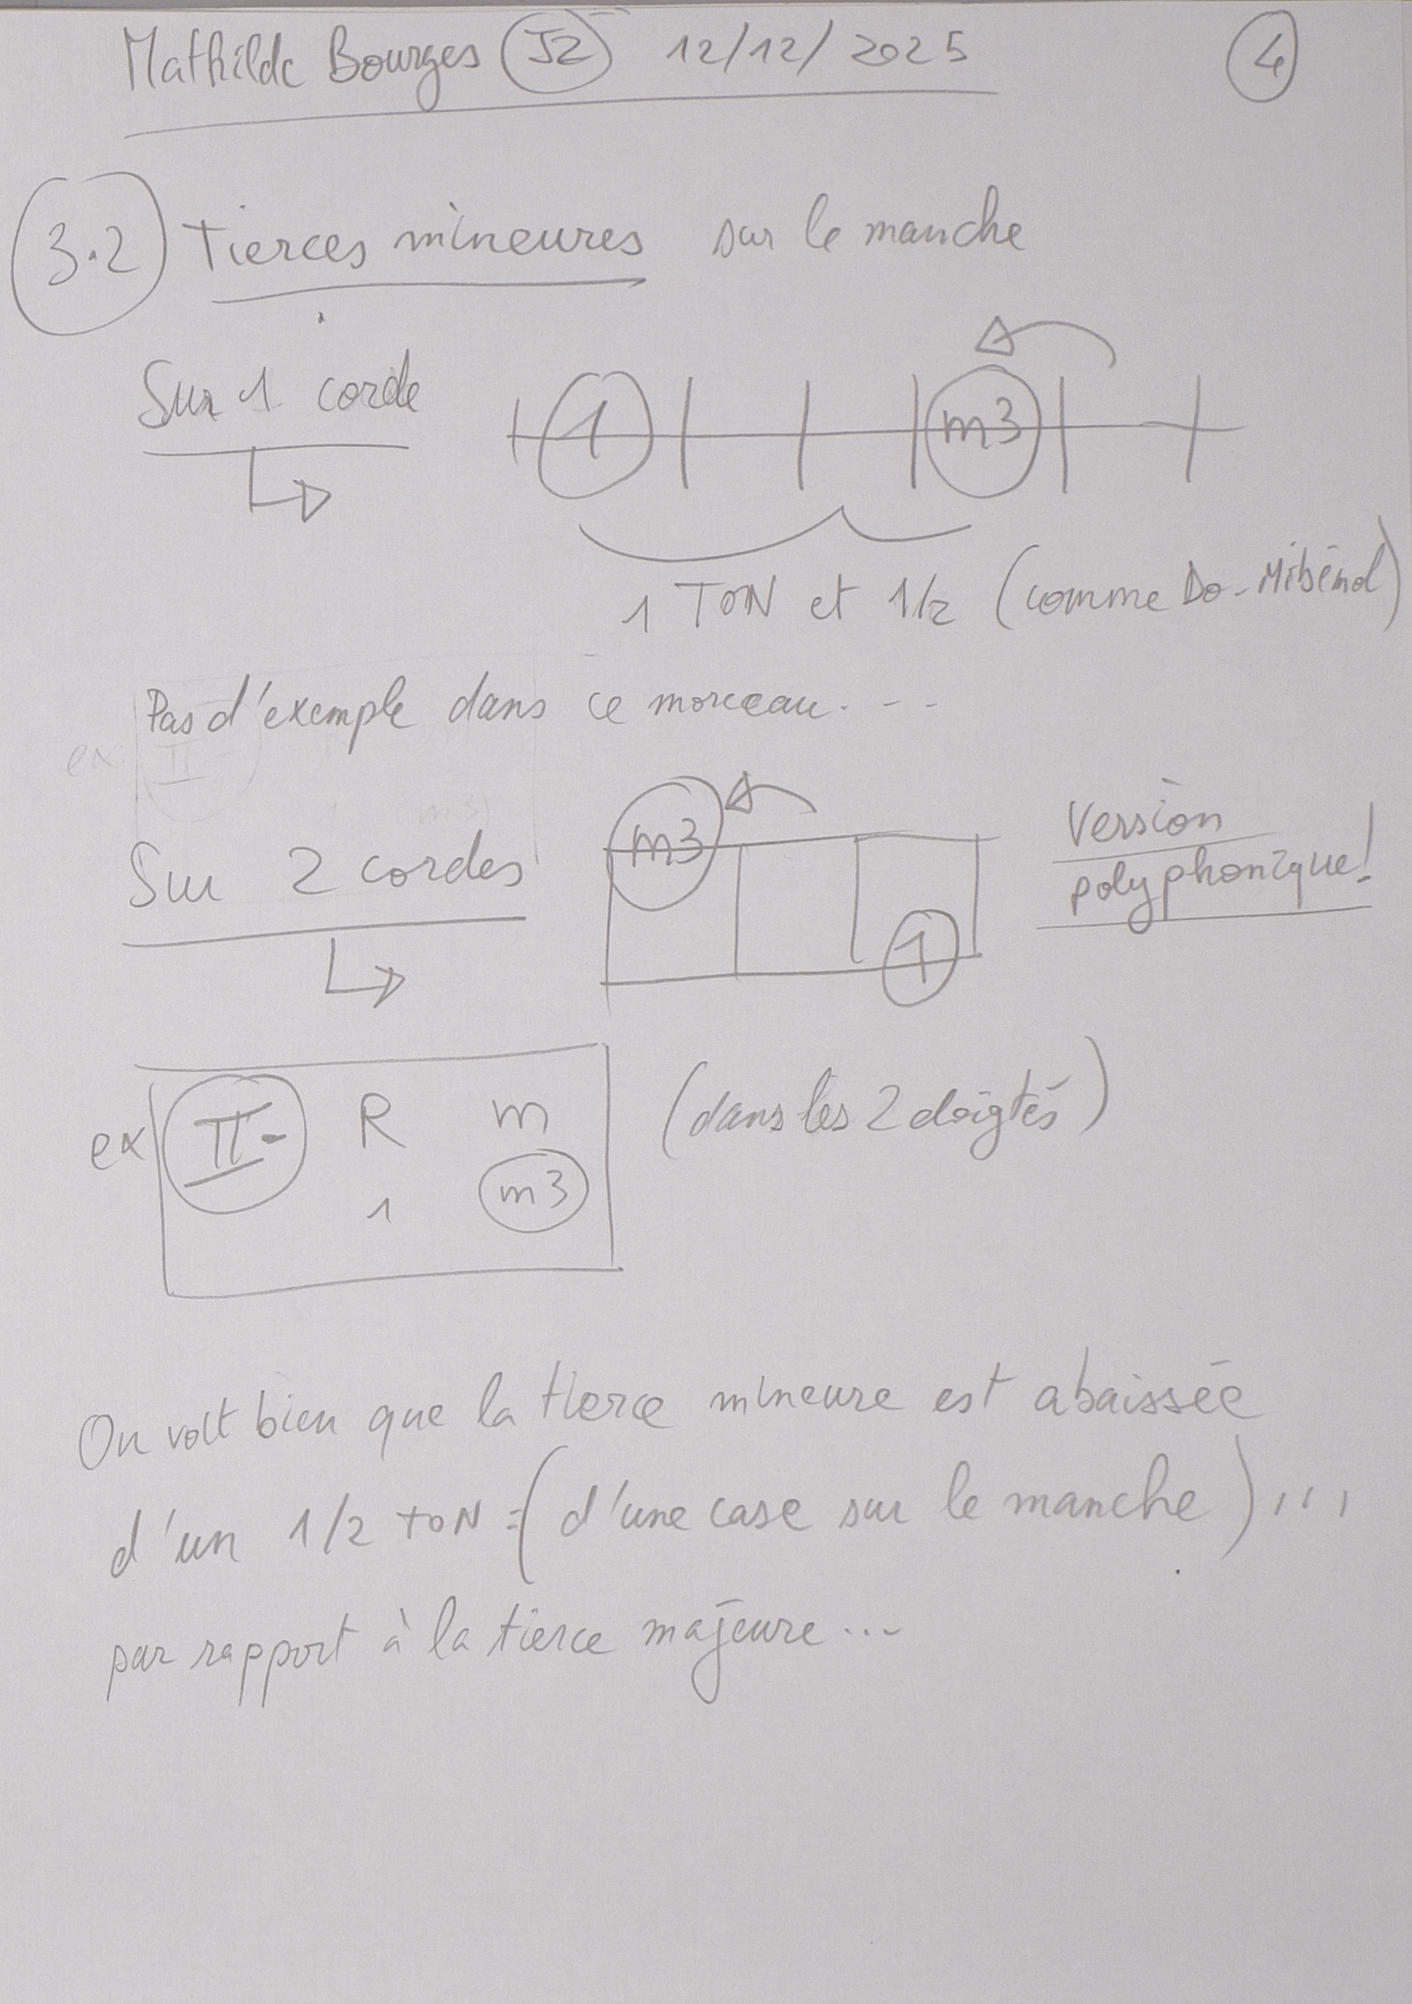 Mathilde Bourges J2 12/12/2025 4
3.2 Tierces mineures sur le manche
Sur 1 corde
1 m3
1 TON et 1/2 (comme Do-Mibémol)
Pas d'exemple dans ce morceau...
ex II-
(m3)
m3
Version
Sur 2 cordes
polyphonique!
1
ex II- R m (dans les 2 doigtés)
1 m3
On voit bien que la tierce mineure est abaissée
d'un 1/2 TON = (d'une case sur le manche)...
par rapport à la tierce majeure...